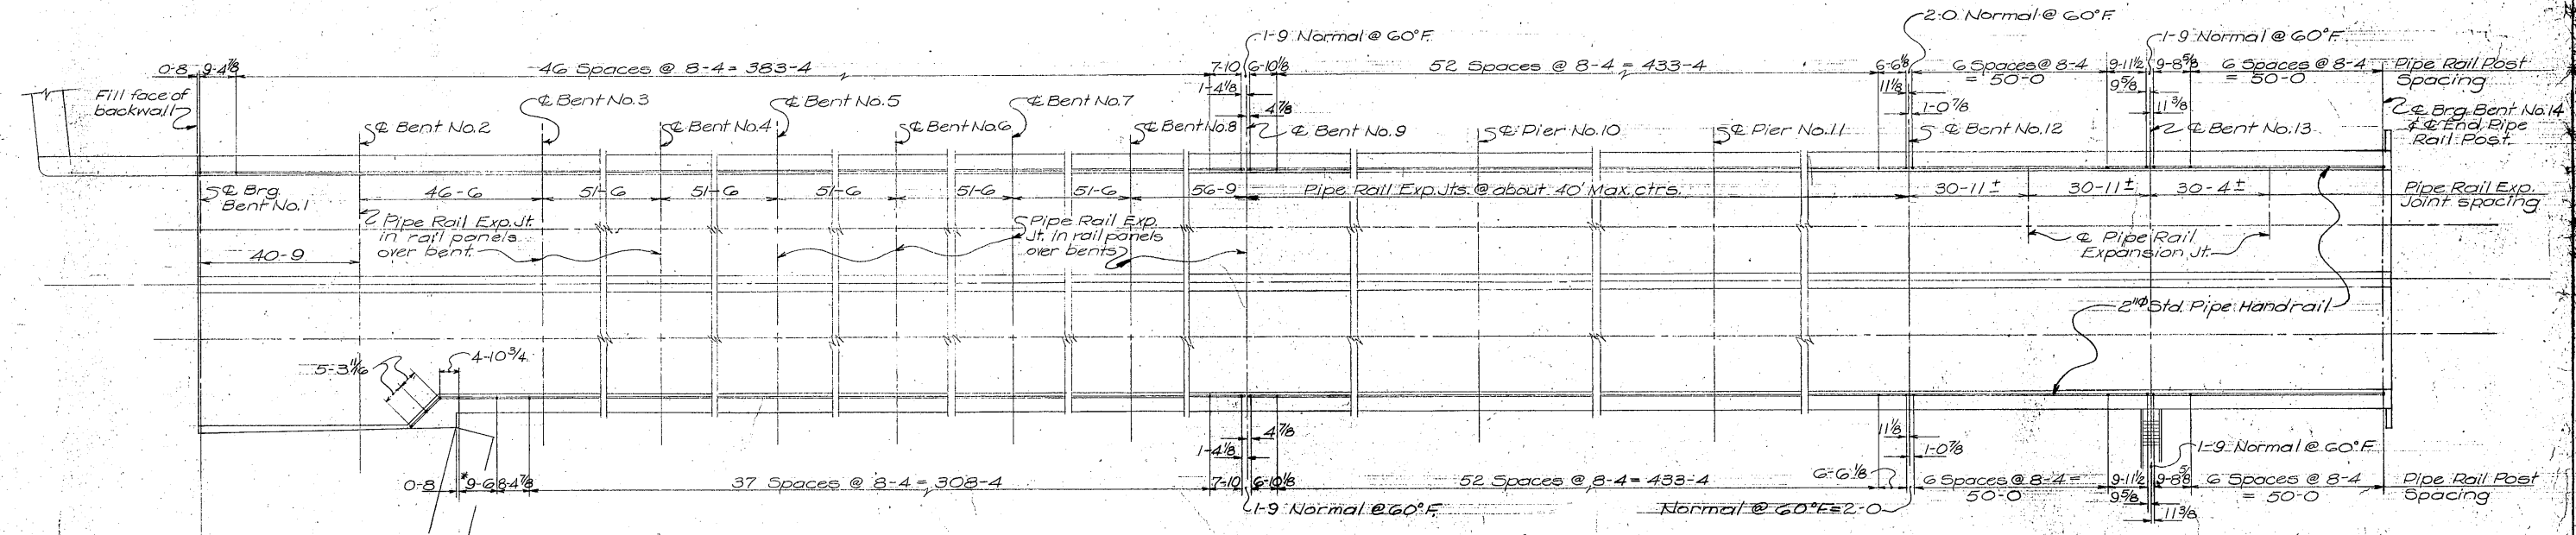 2-0 Normal @ 60°F.
1-9 Normal @ 60°F.
1-9 Normal @ 60°F.
0-8 9-4⅞
46 Spaces @ 8-4 = 383-4
7-10 6-10⅛
52 Spaces @ 8-4 = 433-4
6-6⅛
6 Spaces @ 8-4
= 50-0
9-11½ 9-8⅝
6 Spaces @ 8-4
= 50-0
Pipe Rail Post
Spacing
1-4⅛
4⅞
11⅛
1-0⅞
9⅝
11⅜
Fill face of
backwall
℄ Bent No. 2
℄ Bent No. 3
℄ Bent No. 4
℄ Bent No. 5
℄ Bent No. 6
℄ Bent No. 7
℄ Bent No. 8
℄ Bent No. 9
℄ Pier No. 10
℄ Pier No. 11
℄ Bent No. 12
℄ Bent No. 13
℄ Brg. Bent No. 14
& ℄ End Pipe
Rail Post.
℄ Brg.
Bent No. 1
46-6
51-6
51-6
51-6
51-6
51-6
56-9
Pipe Rail Exp. Jts. @ about 40' Max. ctrs.
30-11 ±
30-11 ±
30-4 ±
Pipe Rail Exp.
Joint spacing
40-9
Pipe Rail Exp. Jt.
in rail panels
over bent.
Pipe Rail Exp.
Jt. in rail panels
over bents
℄ Pipe Rail
Expansion Jt.
2"Φ Std. Pipe Handrail
5-3 11/16
4-10¾
0-8
*9-6 8-4⅞
37 Spaces @ 8-4 = 308-4
1-4⅛
4⅞
7-10 6-10⅛
1-9 Normal @ 60°F.
52 Spaces @ 8-4 = 433-4
6-6⅛
11⅛
1-0⅞
Normal @ 60°F = 2-0
6 Spaces @ 8-4 =
50-0
9-11½ 9-8⅝
9⅝
11⅜
1-9 Normal @ 60°F.
6 Spaces @ 8-4
= 50-0
Pipe Rail Post
Spacing